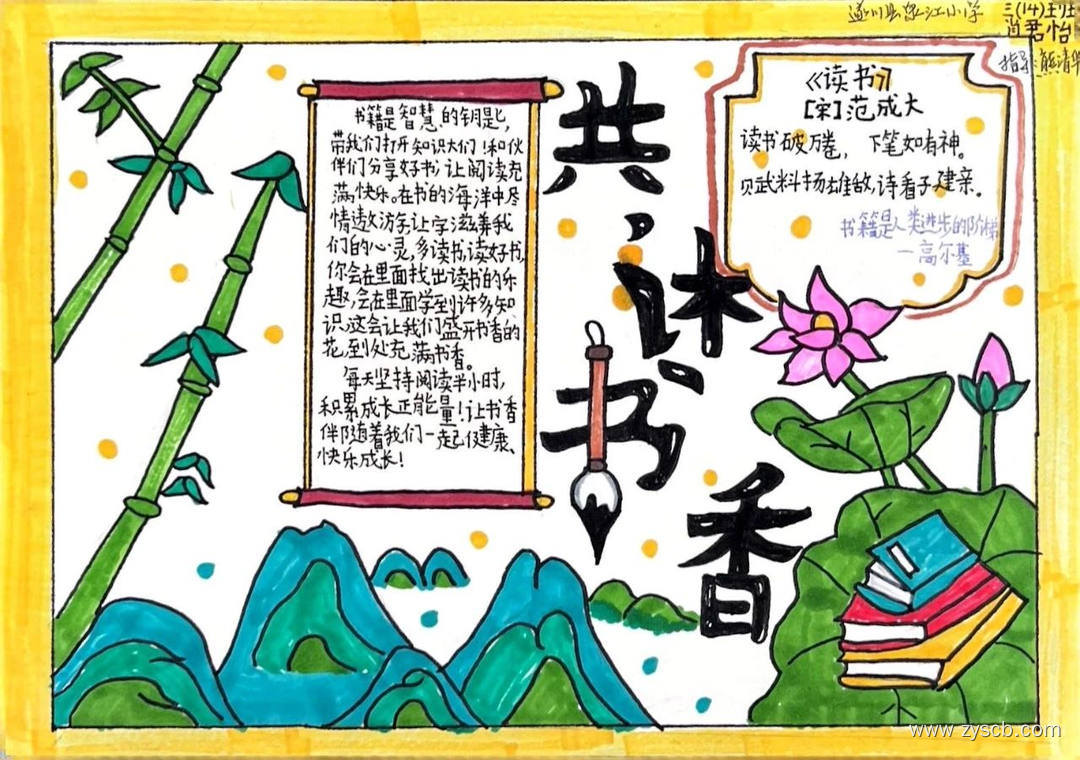 遂川县泉江小学
三(14)班
肖君怡
指导:熊清华
共读书香
书籍是智慧的钥匙,
带我们打开知识大们!和伙
伴们分享好书,让阅读充
满快乐。在书的海洋中尽
情遨游,让字滋养我
们的心灵,多读书,读好书,
你会在里面找出读书的乐
趣,会在里面学到许多知
识,这会让我们盛开书香的
花,到处充满书香。
每天坚持阅读半小时,
积累成长正能量!让书香
伴随着我们一起健康、
快乐成长!
《读书》
[宋]范成大
读书破万卷,下笔如有神。
贝武料扬雄敌,诗看子建亲。
书籍是人类进步的阶梯
一高尔基
www.zyscb.com